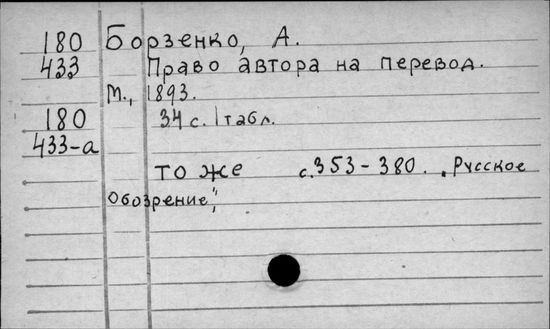 180 Борзенко, А.
433 Право автора на перевод.
М., 1893.
180 34 с. 1 табл.
433-а
то же с. 353-380. „Русское
Обозрение",